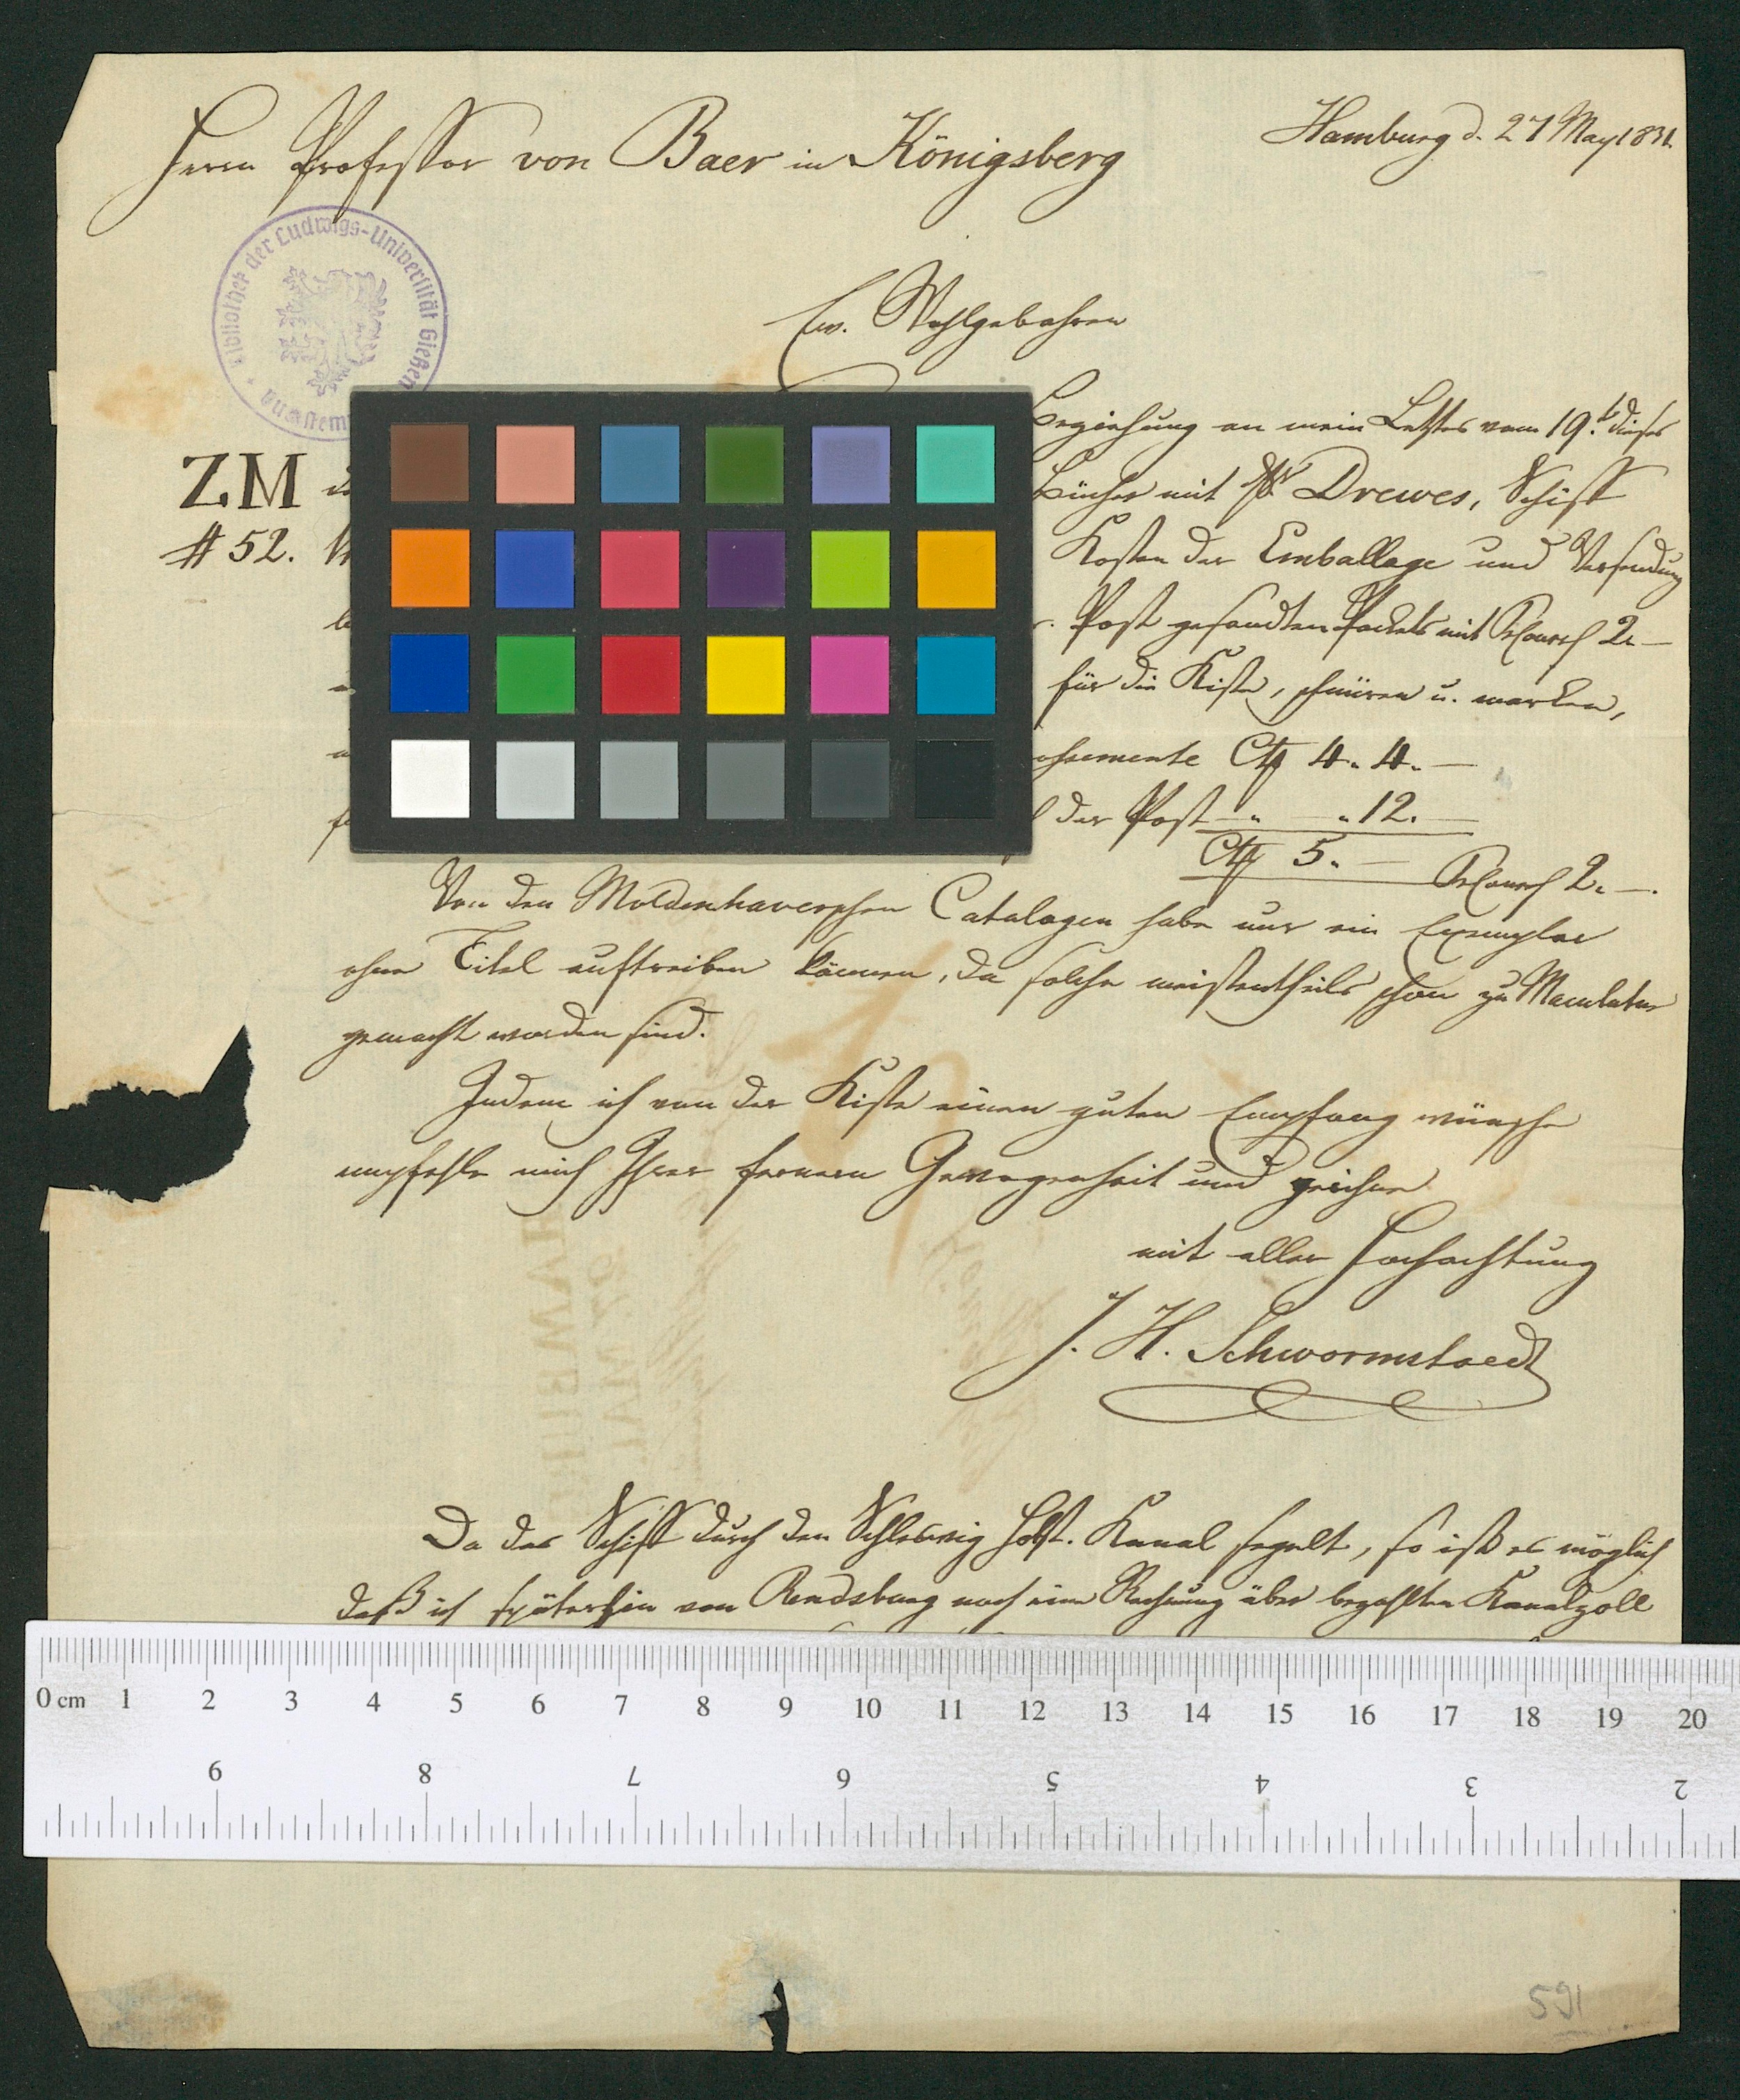 Hamburg d. 27 May 1831.
Herrn Professor von Baer in Königsberg
Bibliothek der Ludwigs-Universität Gießen
Ew. Wohlgebohren
Beziehung an mein Letztes vom 19.t dieses
ZM
Bücher mit Drewes, Schiff
# 52.
Kosten der Emballage und Versendung
Post gesandten Packets mit 2. —
für die Kiste, schnüren u. marken,
4. 4. —
der Post — " — " 12. —
5. — 2. —.
Von den Moldenhawerschen Catalogen habe nur ein Exemplar
ohne Titel auftreiben können, da solche meistentheils schon zu Maculatur
gemacht worden sind.
Indem ich von der Kiste einen guten Empfang wünsche
empfehle mich Ihrer fernern Gewogenheit und zeichne
mit aller Hochachtung
J. H. Schwormstaedt
Da das Schiff durch den Schleswig Holst. Kanal segelt, so ist es möglich
daß ich späterhin von Rendsburg noch eine Rechnung über bezahlten Kanalzoll
0 cm 1 2 3 4 5 6 7 8 9 10 11 12 13 14 15 16 17 18 19 20
9 8 7 6 5 4 3 2
591